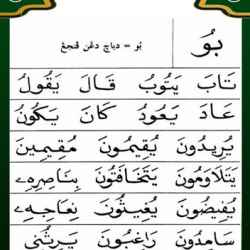 بُو
بُو = دباچ دڠن ڤنجڠ
تَابَ يَتُوبُ قَالَ يَقُولُ
عَادَ يَعُودُ كَانَ يَكُونُ
يُرِيدُونَ يُقِيمُونَ مُقِيمِينَ
يَتَلَاوَمُونَ يَتَخَافَتُونَ بِنَاصِرِهِے
يُفِيضُونَ يُغِيثُونَ نِعَاجِهِے
سَامِدُونَ رَاغِبُونَ يَرِثُنِي